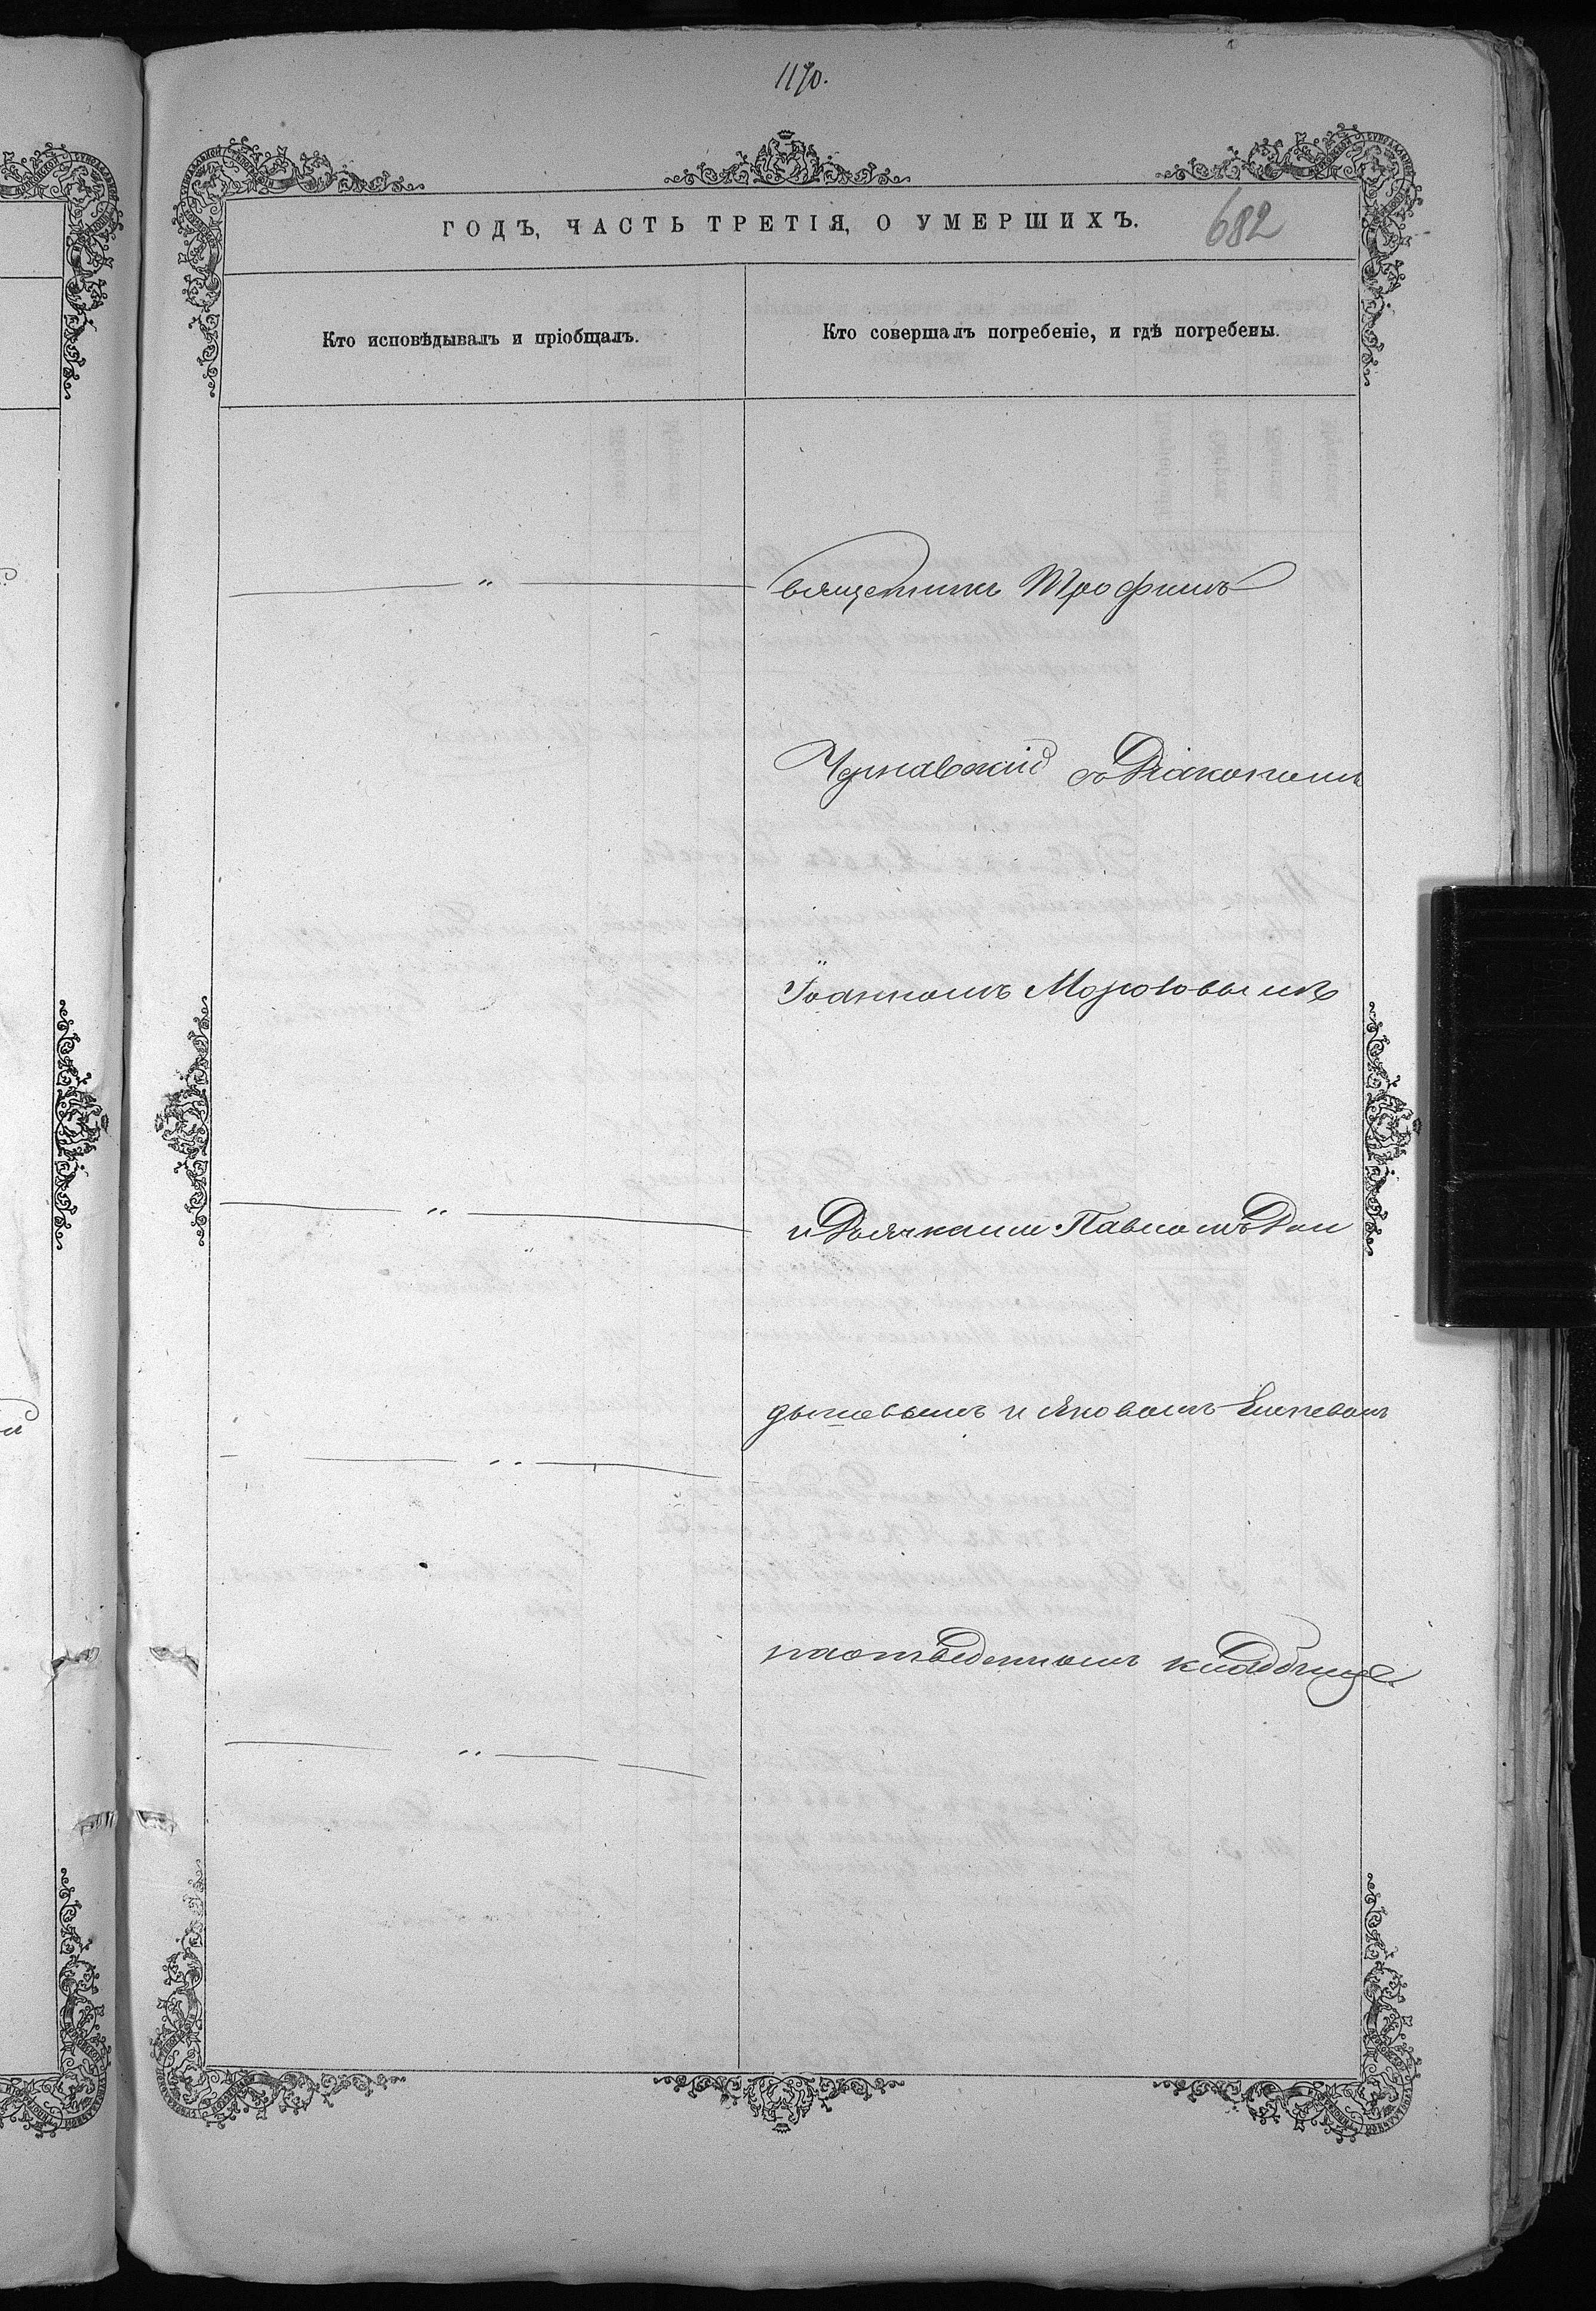 1170.
ГОДЪ, ЧАСТЬ ТРЕТІЯ, О УМЕРШИХЪ.
682
Кто исповѣдывалъ и пріобщалъ.
Кто совершалъ погребеніе, и гдѣ погребены.
— " —
Священникъ Трофимъ
Чернавскій съ Діакономъ
Іоанномъ Морозовымъ
— " —
и Дьячками Павломъ Дани
и Яковомъ
— " —
на отведенномъ кладбище
— " —